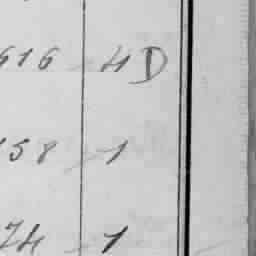 616 4D
158 1
74 1